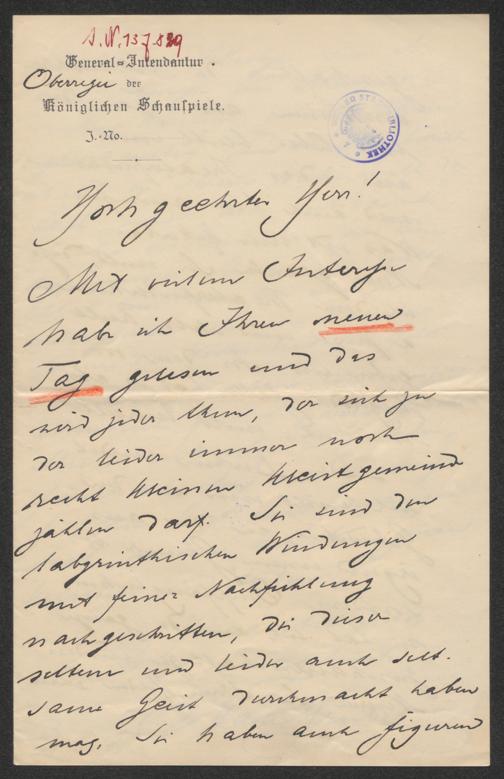 J.N. 137.829
General-Intendantur.
Oberregie der
Königlichen Schauspiele.
J.-No.
BIBLIOTHEK
Hochgeehrter Herr!
Mit vielem Interesse
habe ich Ihren neuen
Tag gelesen und das
wird jeder thun, der sich zu
der leider immer noch
recht kleinen Kleistgemeinde
zählen darf. Sie sind den
labyrinthischen Windungen
mit feiner Nachfühlung
nachgeschritten, die dieser
seltene und leider auch selt-
same Geist durchmacht haben
mag. Sie haben auch Figuren